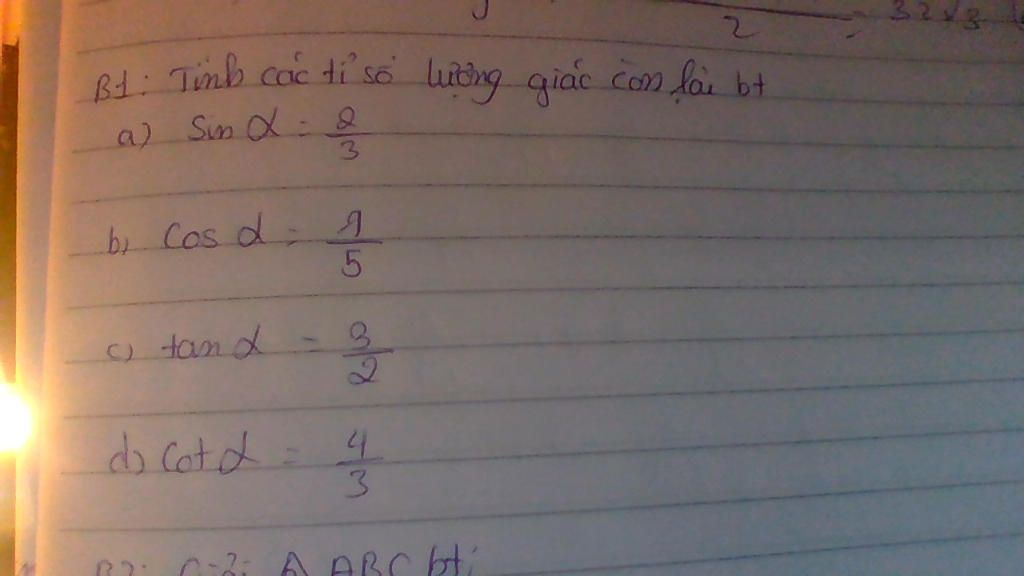 2 = 32√3
B1: Tính các tỉ số lượng giác còn lại bt
a) Sin α = 2/3
b, Cos α = 1/5
c) tan α = 3/2
d) Cot α = 4/3
ABC bt: